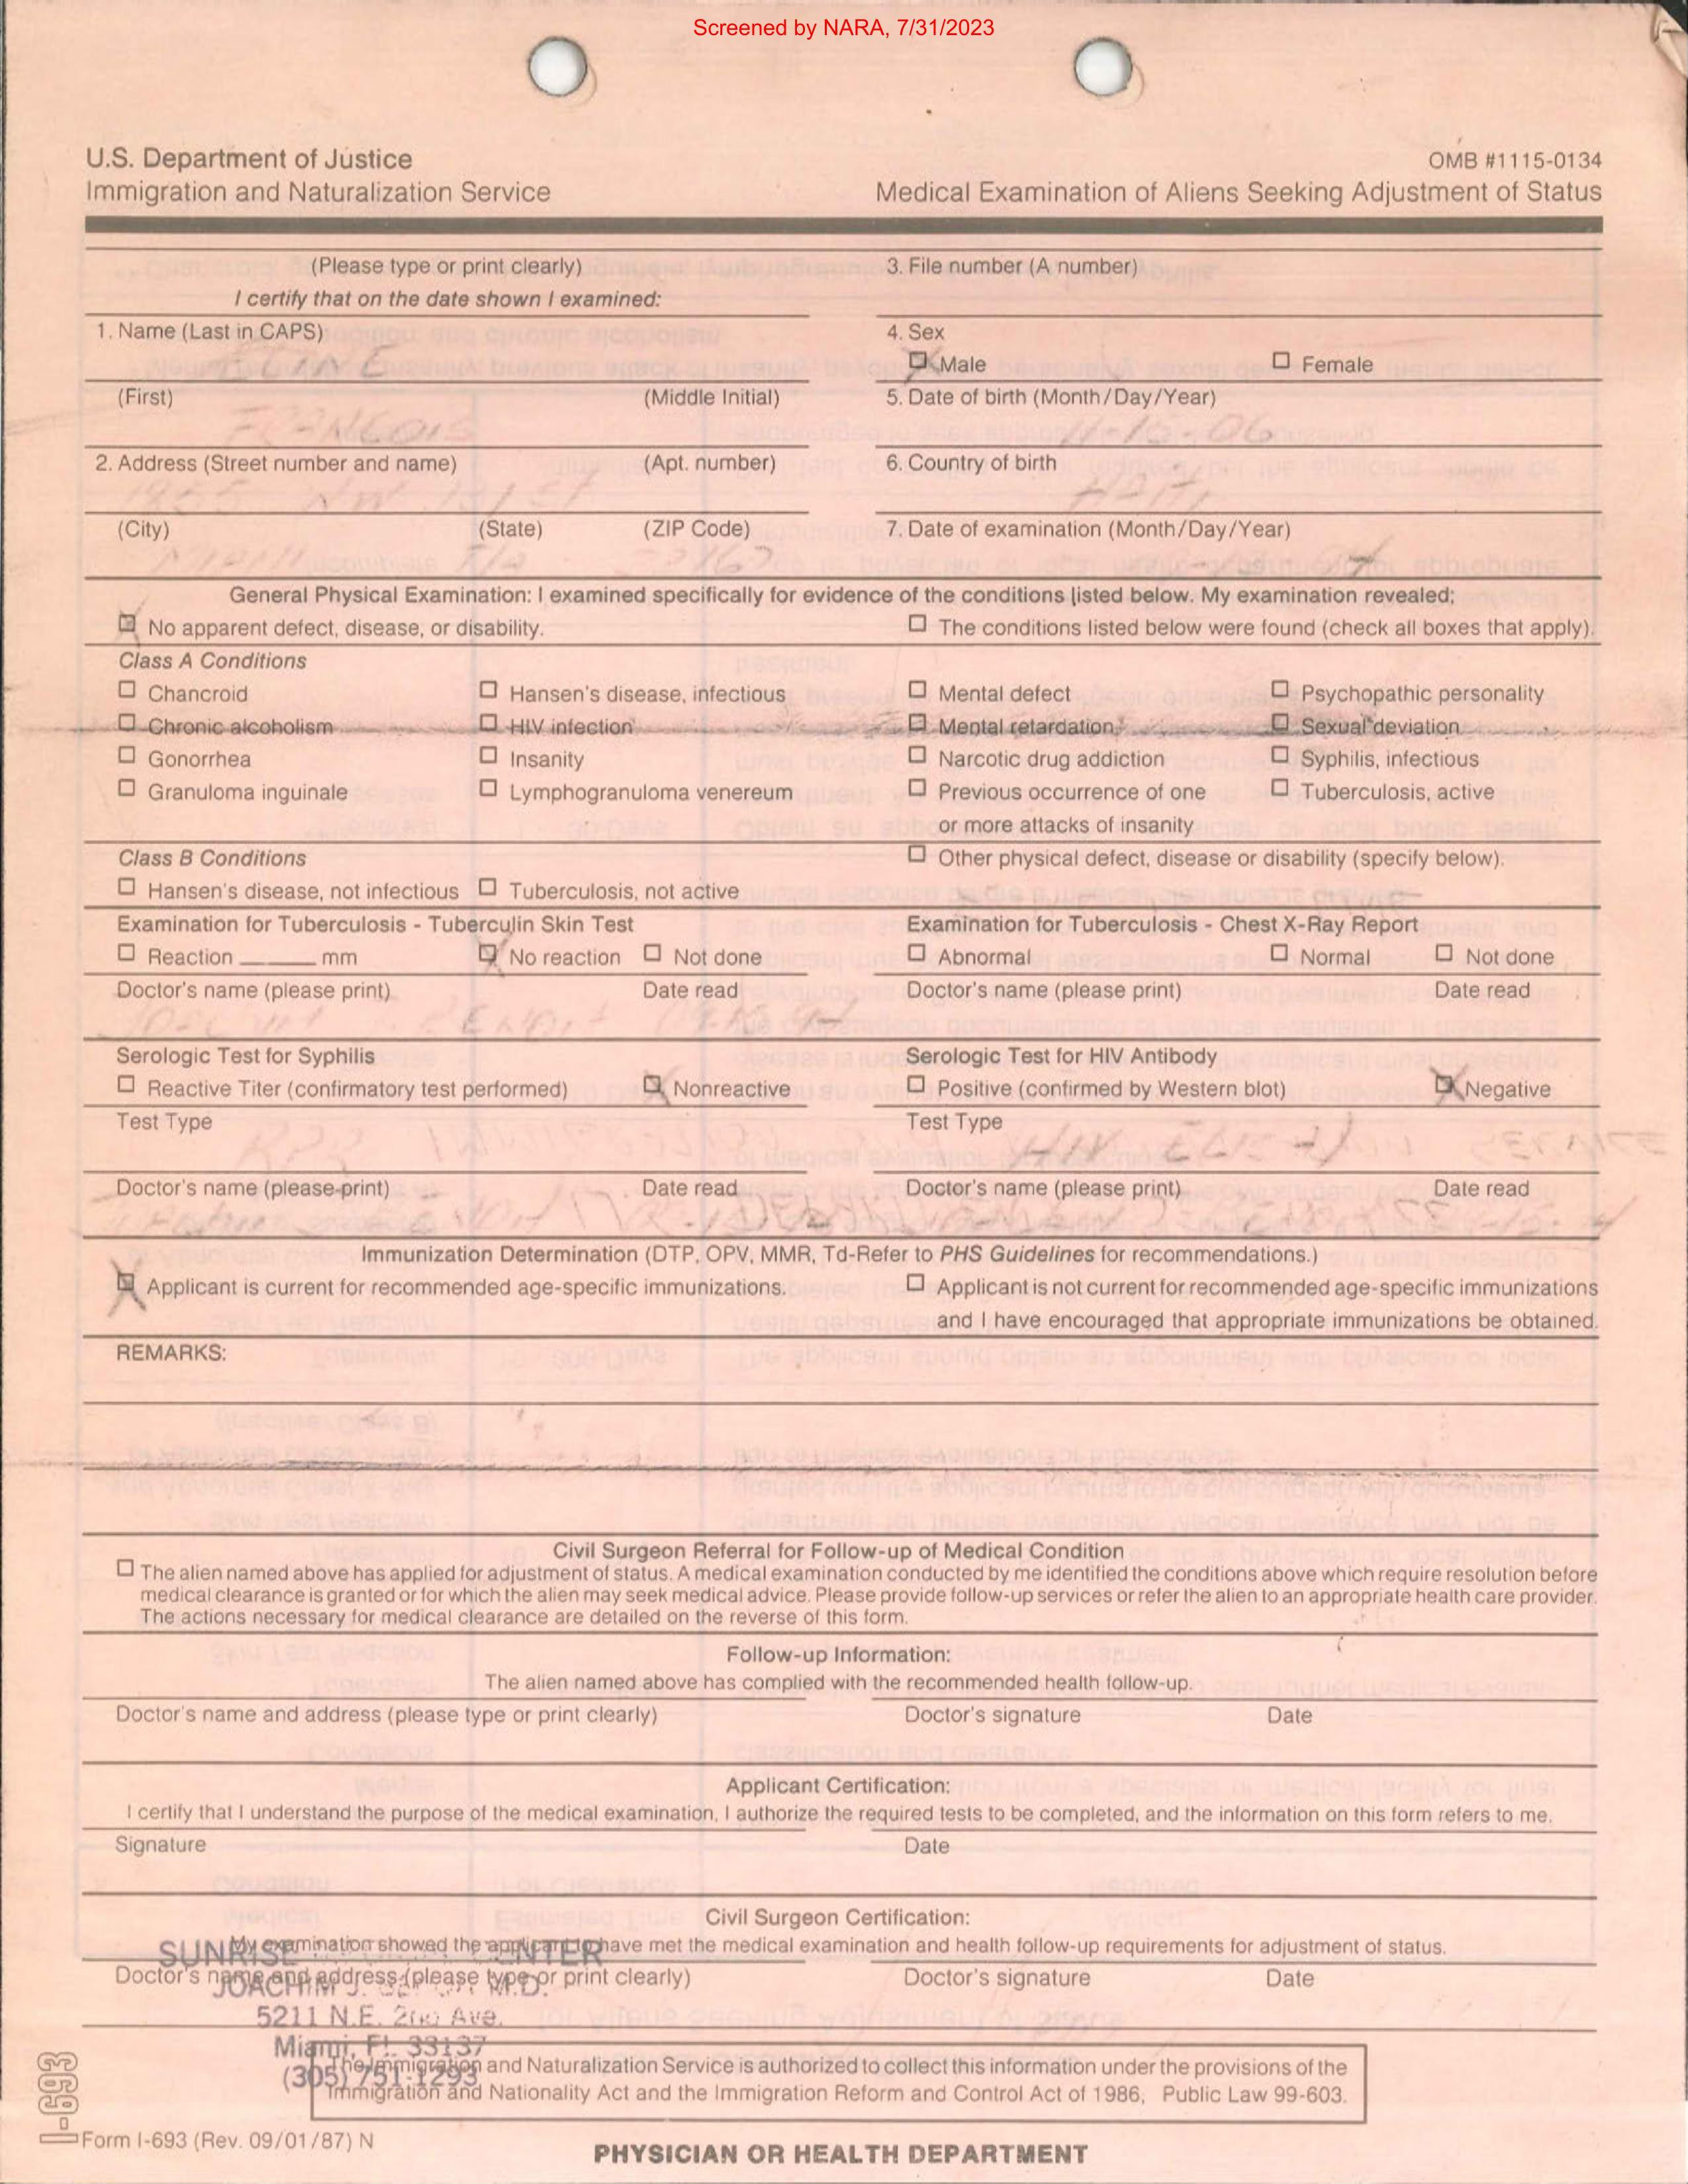 Screened by NARA, 7/31/2023
U.S. Department of Justice
Immigration and Naturalization Service
OMB #1115-0134
Medical Examination of Aliens Seeking Adjustment of Status
(Please type or print clearly)
I certify that on the date shown I examined:
3. File number (A number)
1. Name (Last in CAPS)
4. Sex
Male
Female
(First)
(Middle Initial)
5. Date of birth (Month/Day/Year)
FRANCOIS
-06
2. Address (Street number and name)
(Apt. number)
6. Country of birth
NW
HAITI
(City)
(State)
(ZIP Code)
7. Date of examination (Month/Day/Year)
MIAMI
Fla
General Physical Examination: I examined specifically for evidence of the conditions listed below. My examination revealed:
No apparent defect, disease, or disability.
The conditions listed below were found (check all boxes that apply).
Class A Conditions
Chancroid
Hansen's disease, infectious
Mental defect
Psychopathic personality
Chronic alcoholism
HIV infection
Mental retardation
Sexual deviation
Gonorrhea
Insanity
Narcotic drug addiction
Syphilis, infectious
Granuloma inguinale
Lymphogranuloma venereum
Previous occurrence of one
or more attacks of insanity
Tuberculosis, active
Class B Conditions
Other physical defect, disease or disability (specify below).
Hansen's disease, not infectious
Tuberculosis, not active
Examination for Tuberculosis - Tuberculin Skin Test
Examination for Tuberculosis - Chest X-Ray Report
Reaction ______ mm
No reaction
Not done
Abnormal
Normal
Not done
Doctor's name (please print)
Date read
Doctor's name (please print)
Date read
Serologic Test for Syphilis
Serologic Test for HIV Antibody
Reactive Titer (confirmatory test performed)
Nonreactive
Positive (confirmed by Western blot)
Negative
Test Type
Test Type
RPR
HIV
Doctor's name (please print)
Date read
Doctor's name (please print)
Date read
Immunization Determination (DTP, OPV, MMR, Td-Refer to PHS Guidelines for recommendations.)
Applicant is current for recommended age-specific immunizations.
Applicant is not current for recommended age-specific immunizations
and I have encouraged that appropriate immunizations be obtained.
REMARKS:
Civil Surgeon Referral for Follow-up of Medical Condition
The alien named above has applied for adjustment of status. A medical examination conducted by me identified the conditions above which require resolution before
medical clearance is granted or for which the alien may seek medical advice. Please provide follow-up services or refer the alien to an appropriate health care provider.
The actions necessary for medical clearance are detailed on the reverse of this form.
Follow-up Information:
The alien named above has complied with the recommended health follow-up.
Doctor's name and address (please type or print clearly)
Doctor's signature
Date
Applicant Certification:
I certify that I understand the purpose of the medical examination, I authorize the required tests to be completed, and the information on this form refers to me.
Signature
Date
Civil Surgeon Certification:
My examination showed the applicant to have met the medical examination and health follow-up requirements for adjustment of status.
Doctor's name and address (please type or print clearly)
Doctor's signature
Date
SUNRISE
JOACHIM J. M.D.
5211 N.E. 2nd Ave.
Miami, Fl. 33137
(305) 751-1293
The Immigration and Naturalization Service is authorized to collect this information under the provisions of the
Immigration and Nationality Act and the Immigration Reform and Control Act of 1986, Public Law 99-603.
I-693
Form I-693 (Rev. 09/01/87) N
PHYSICIAN OR HEALTH DEPARTMENT